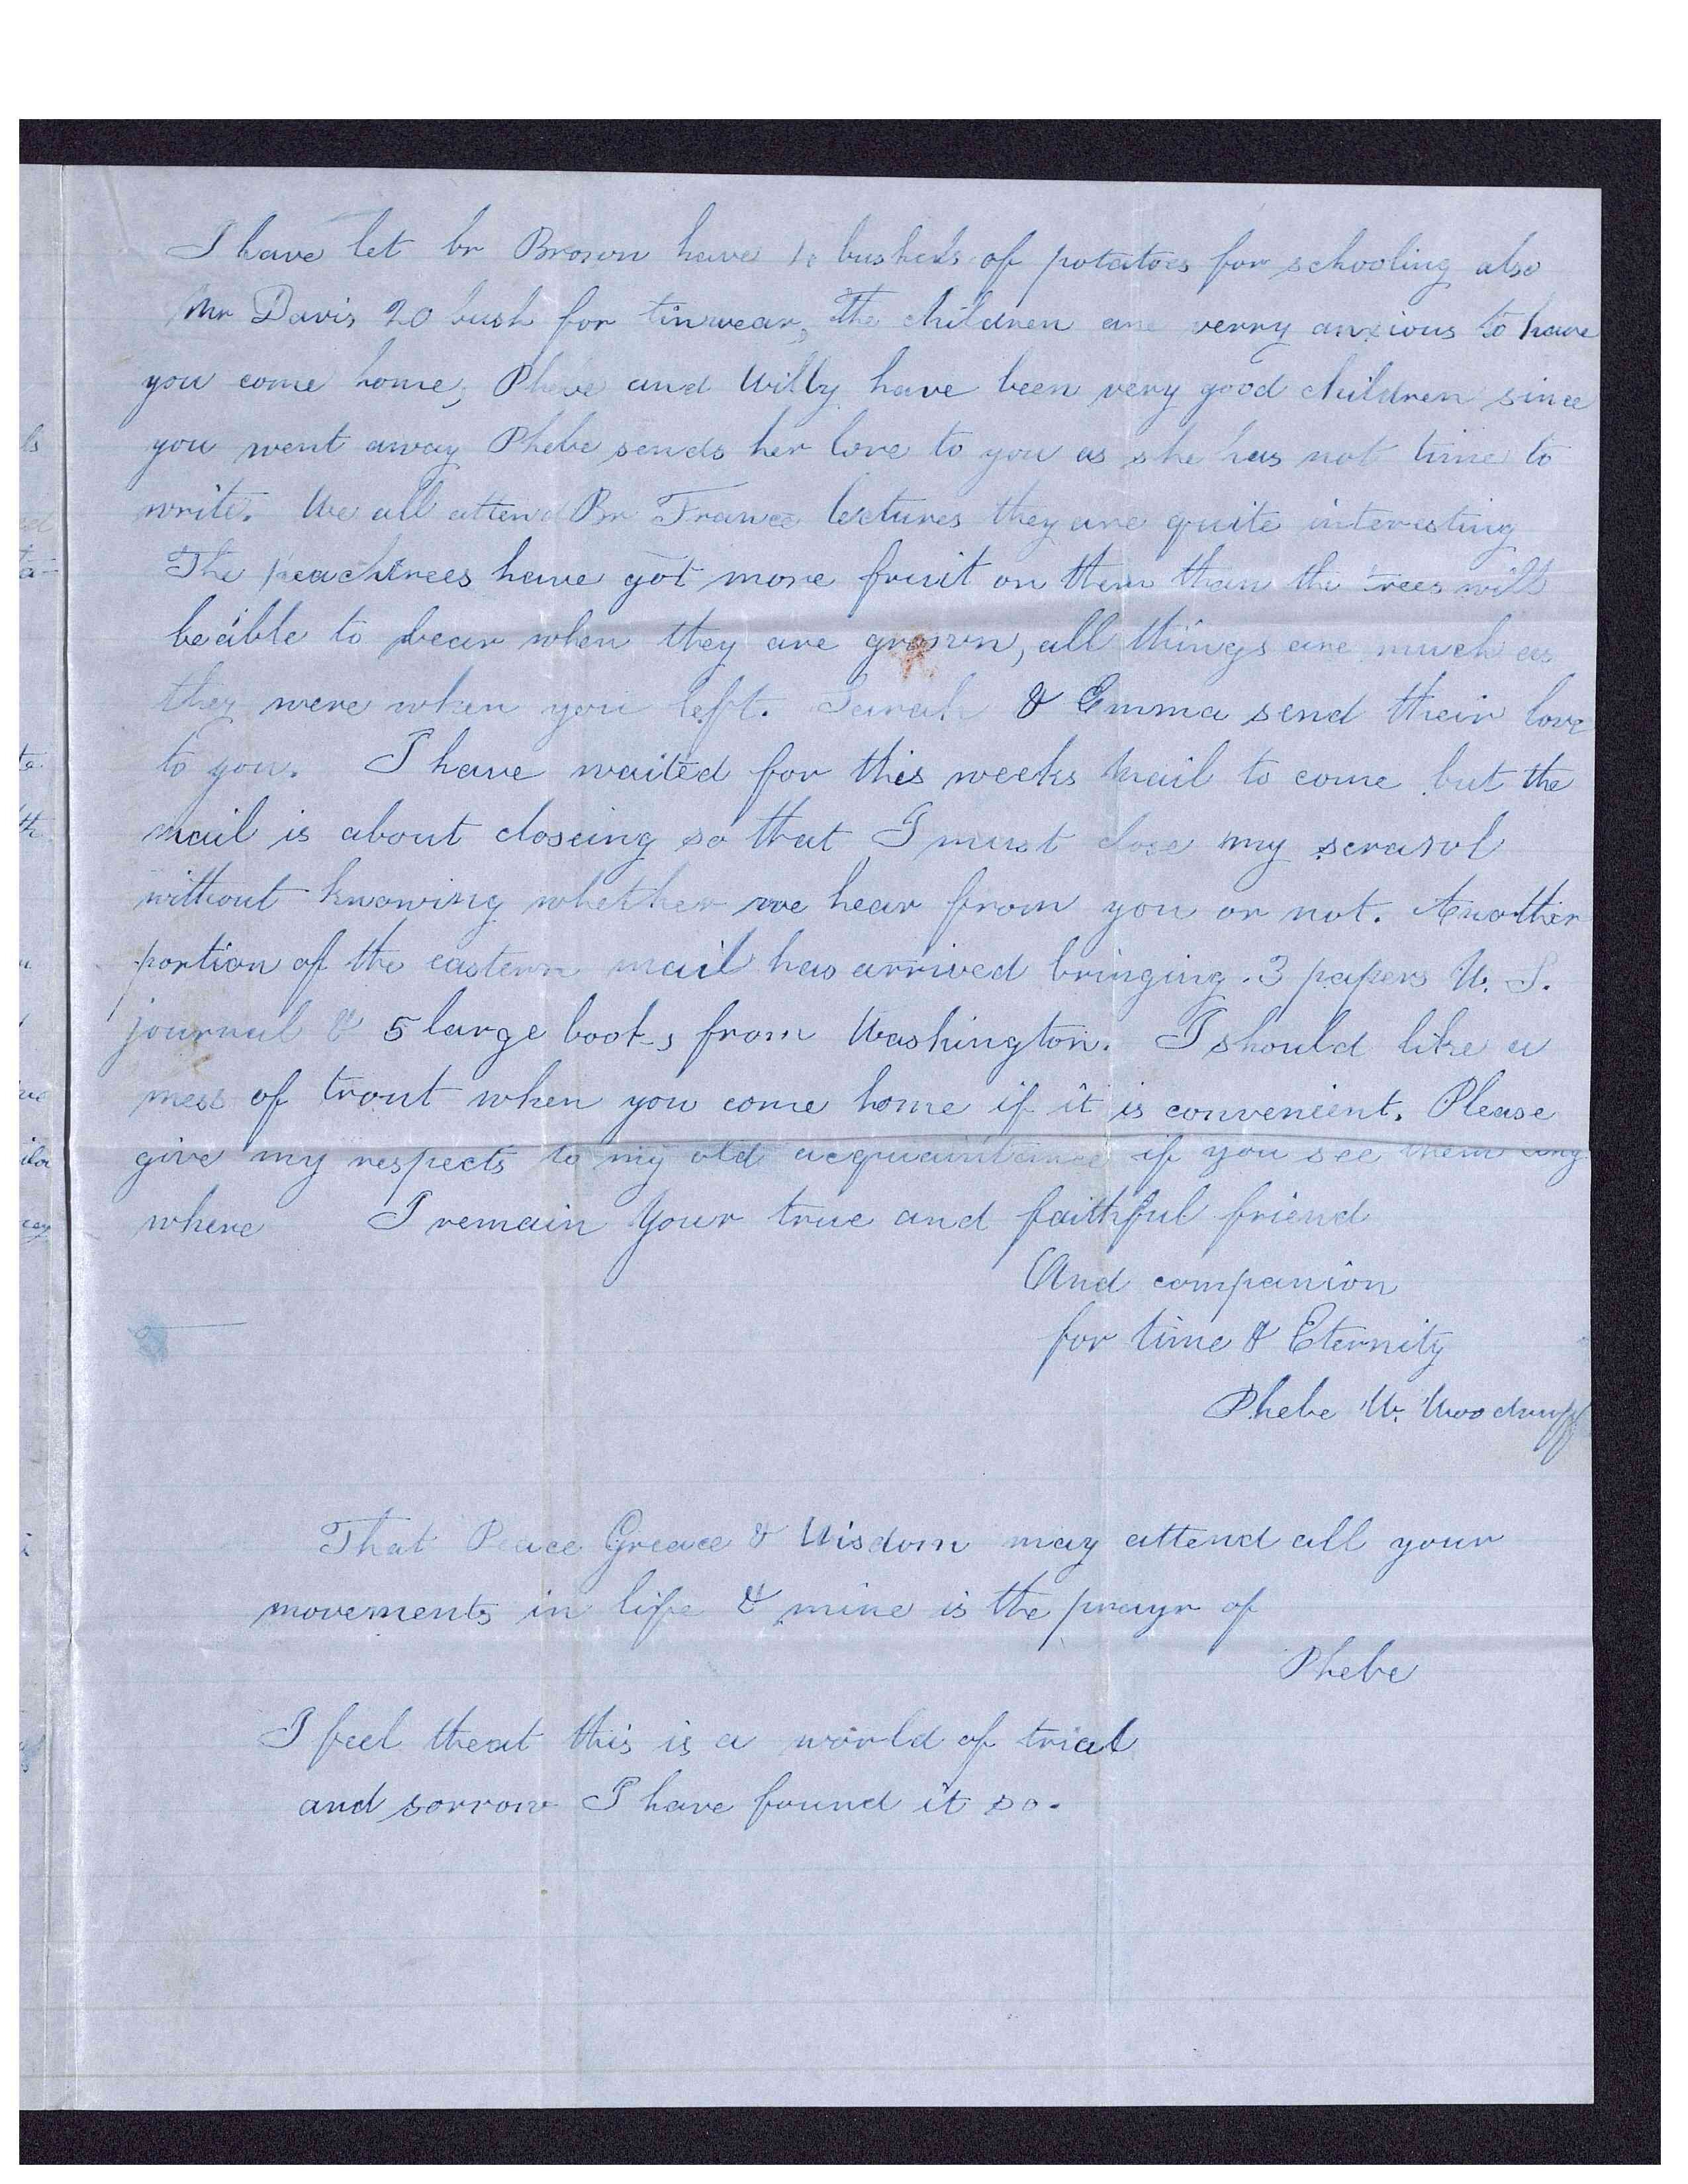 I have let br Brown have 10 bushels of potatoes for schooling also
Mr Davis 20 bush for tinwear, The children are verry anxious to have
you come home, Phebe and Willy have been very good children since
you went away Phebe sends her love to you as she has not time to
write. We all attend Br France lectures they are quite interesting
The peachtrees have got more fruit on them than the trees will
be able to bear when they are grown, all things are much as
they were when you left. Sarah & Emma send their love
to you. I have waited for this weeks mail to come but the
mail is about closeing so that I must close my scrawl
without knowing whether we hear from you or not. Another
portion of the eastern mail has arrived bringing 3 papers U. S.
journal & 5 large books from Washington. I should like a
mess of trout when you come home if it is convenient. Please
give my respects to my old acquaintance if you see them any
where I remain Your true and faithful friend
And companion
for time & Eternity
Phebe W. Woodruff
That Peace Greace & Wisdom may attend all your
movements in life & mine is the prayr of
Phebe
I feel theat this is a world of trial
and sorrow I have found it so.